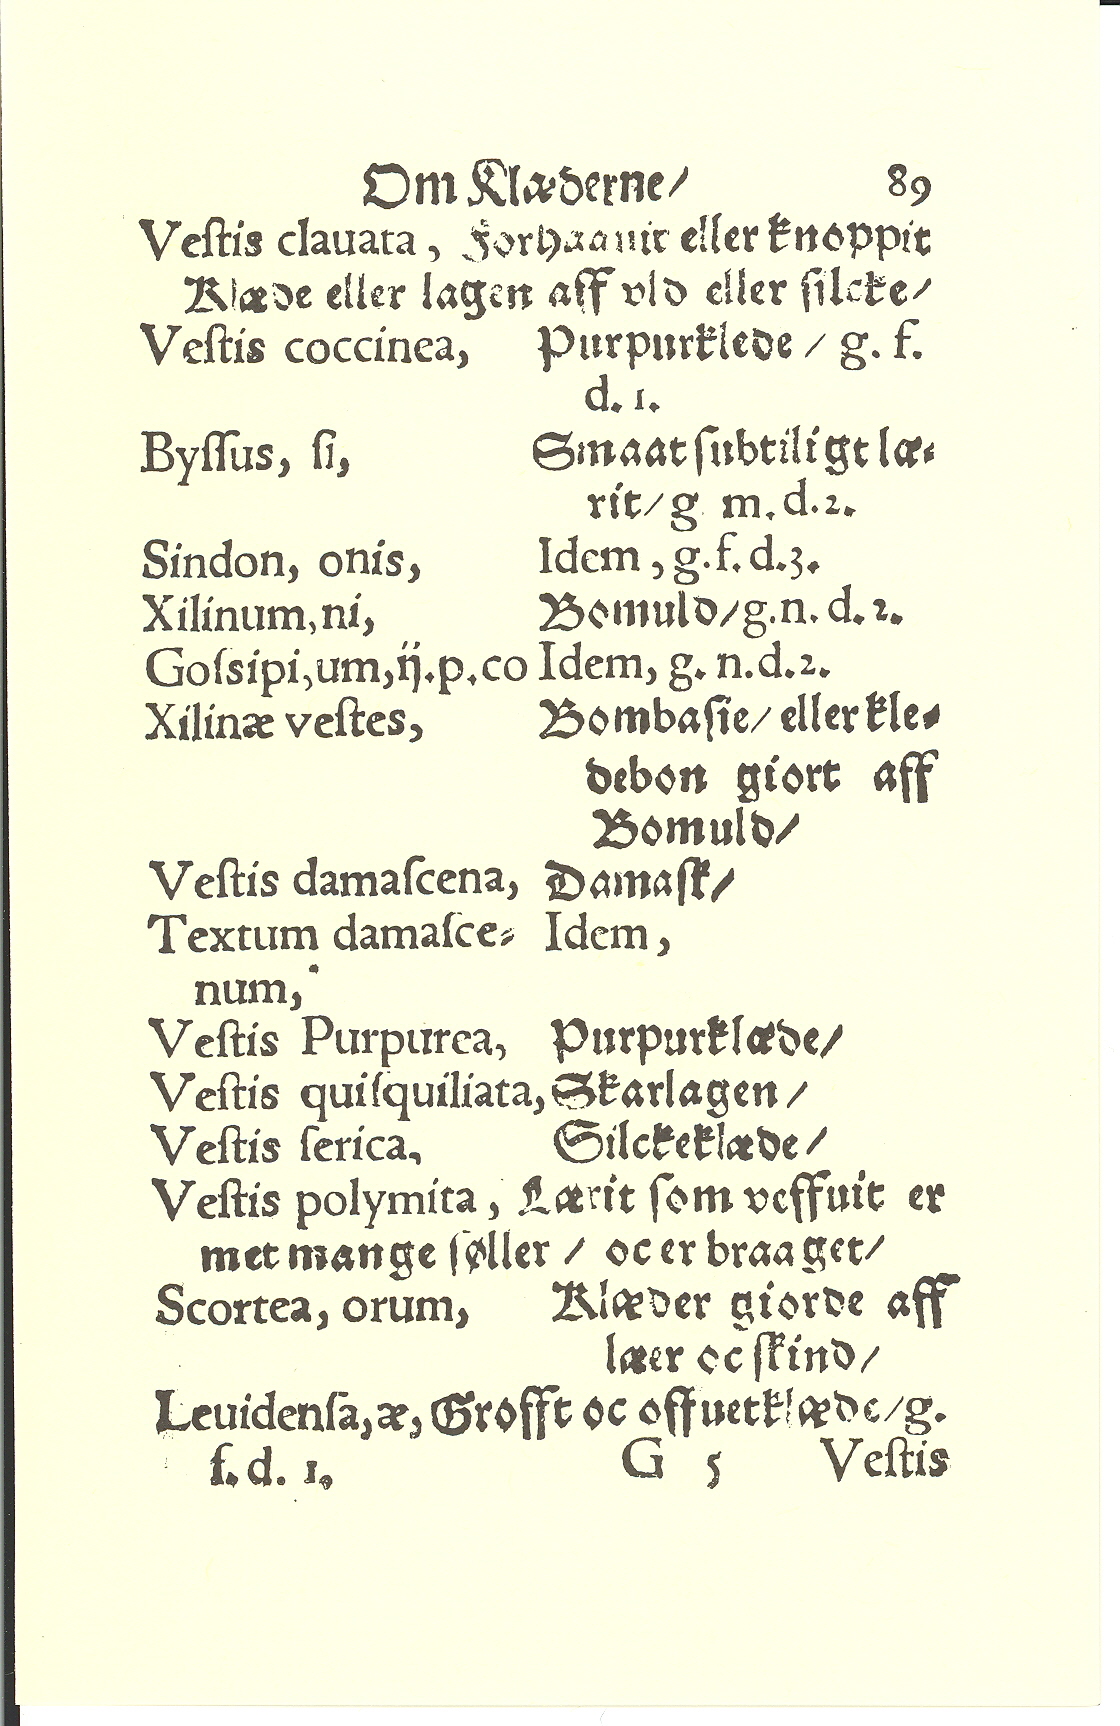 Om Klæderne/ 89
Veſtis clauata, Forhaauit eller knoppit
Klæde eller lagen aff vld eller ſilcke/
Veſtis coccinea, Purpurklede / g. f.
d. 1.
Byſſus, ſi, Smaat ſubtiligt læ⸗
rit/ g m. d. 2.
Sindon, onis, Idem, g. f. d. 3.
Xilinum, ni, Bomuld/ g. n. d. 2.
Goſsipi, um, ij. p. co Idem, g. n. d. 2.
Xilinæ veſtes, Bombaſie/ eller kle⸗
debon giort aff
Bomuld/
Veſtis damaſcena, Damaſk/
Textum damaſce⸗ Idem,
num,
Veſtis Purpurea, Purpurklæde/
Veſtis quiſquiliata, Skarlagen/
Veſtis ſerica, Silckeklæde/
Veſtis polymita, Lærit ſom veffuit er
met mange ſøller / oc er braaget/
Scortea, orum, Klæder giorde aff
læer oc ſkind/
Leuidenſa, æ, Grofft oc offuetklæde/ g.
f. d. 1. G 5 Veſtis